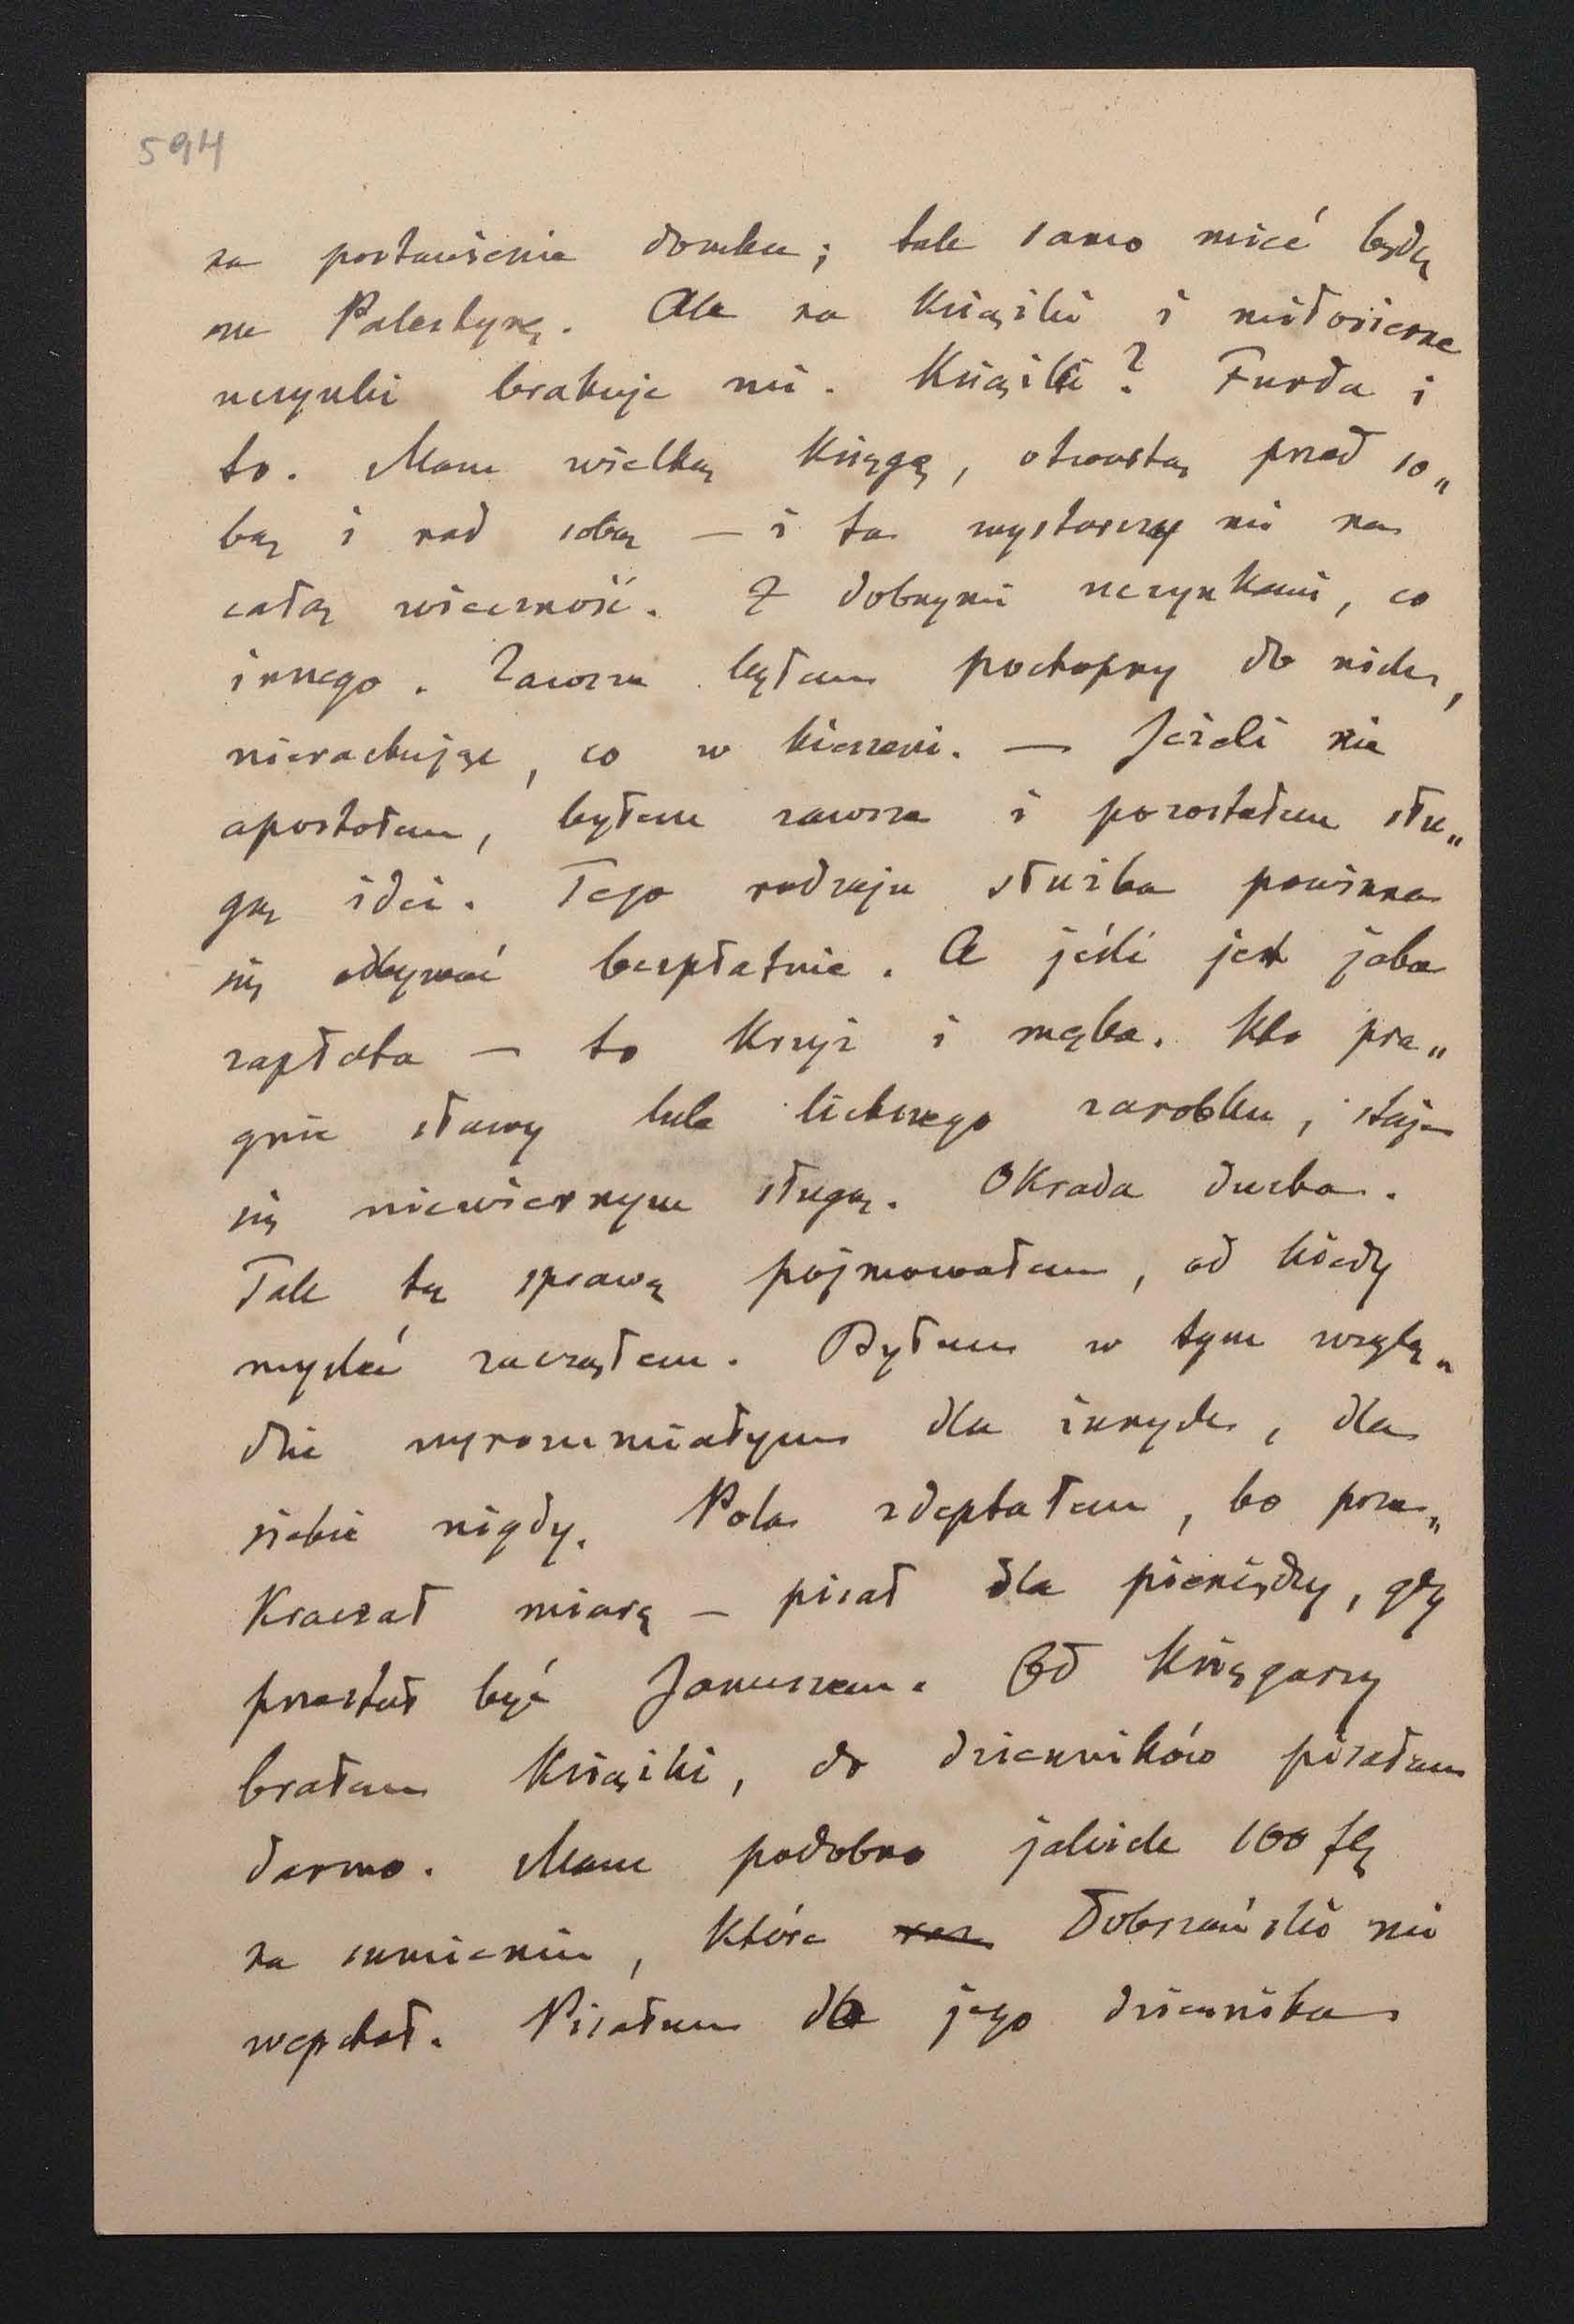 594
na postawienie domku; tak samo mieć będę
na Palestynę. Ale na książki i miłosierne
uczynki brakuje mi. Książki? Furda i
to. Mam wielką księgę, otwartą przed so„
bą i nad sobą — i ta wystarczy mi na
całą wieczność. Z dobrymi uczynkami, co
innego. Zawsze byłem pochopny do nich,
nierachując, co w kieszeni. — Jeżeli nie
apostołem, byłem zawsze i pozostałem słu„
gą idei. Tego rodzaju służba powinna
się odbywać bezpłatnie. A jeśli jest jaka
zapłata — to krzyż i męka. Kto pra„
gnie sławy lub lichszego zarobku, staje
się niewiernym sługą. Okrada ducha.
Tak tę sprawę pojmowałem, od kiedy
myśleć zacząłem. Byłem w tym wzglę„
dzie wyrozumiałym dla innych, dla
siebie nigdy. Pola zdeptałem, bo prze„
kraczał miarę — pisał dla pieniędzy, gdy
przestał być Januszem. Od księgarzy
brałem książki, do dzienników pisałem
darmo. Mam podobno jakich 100 fl
na sumieniu, które Dobrzański mi
wepchał. Pisałem dla jego dziennika